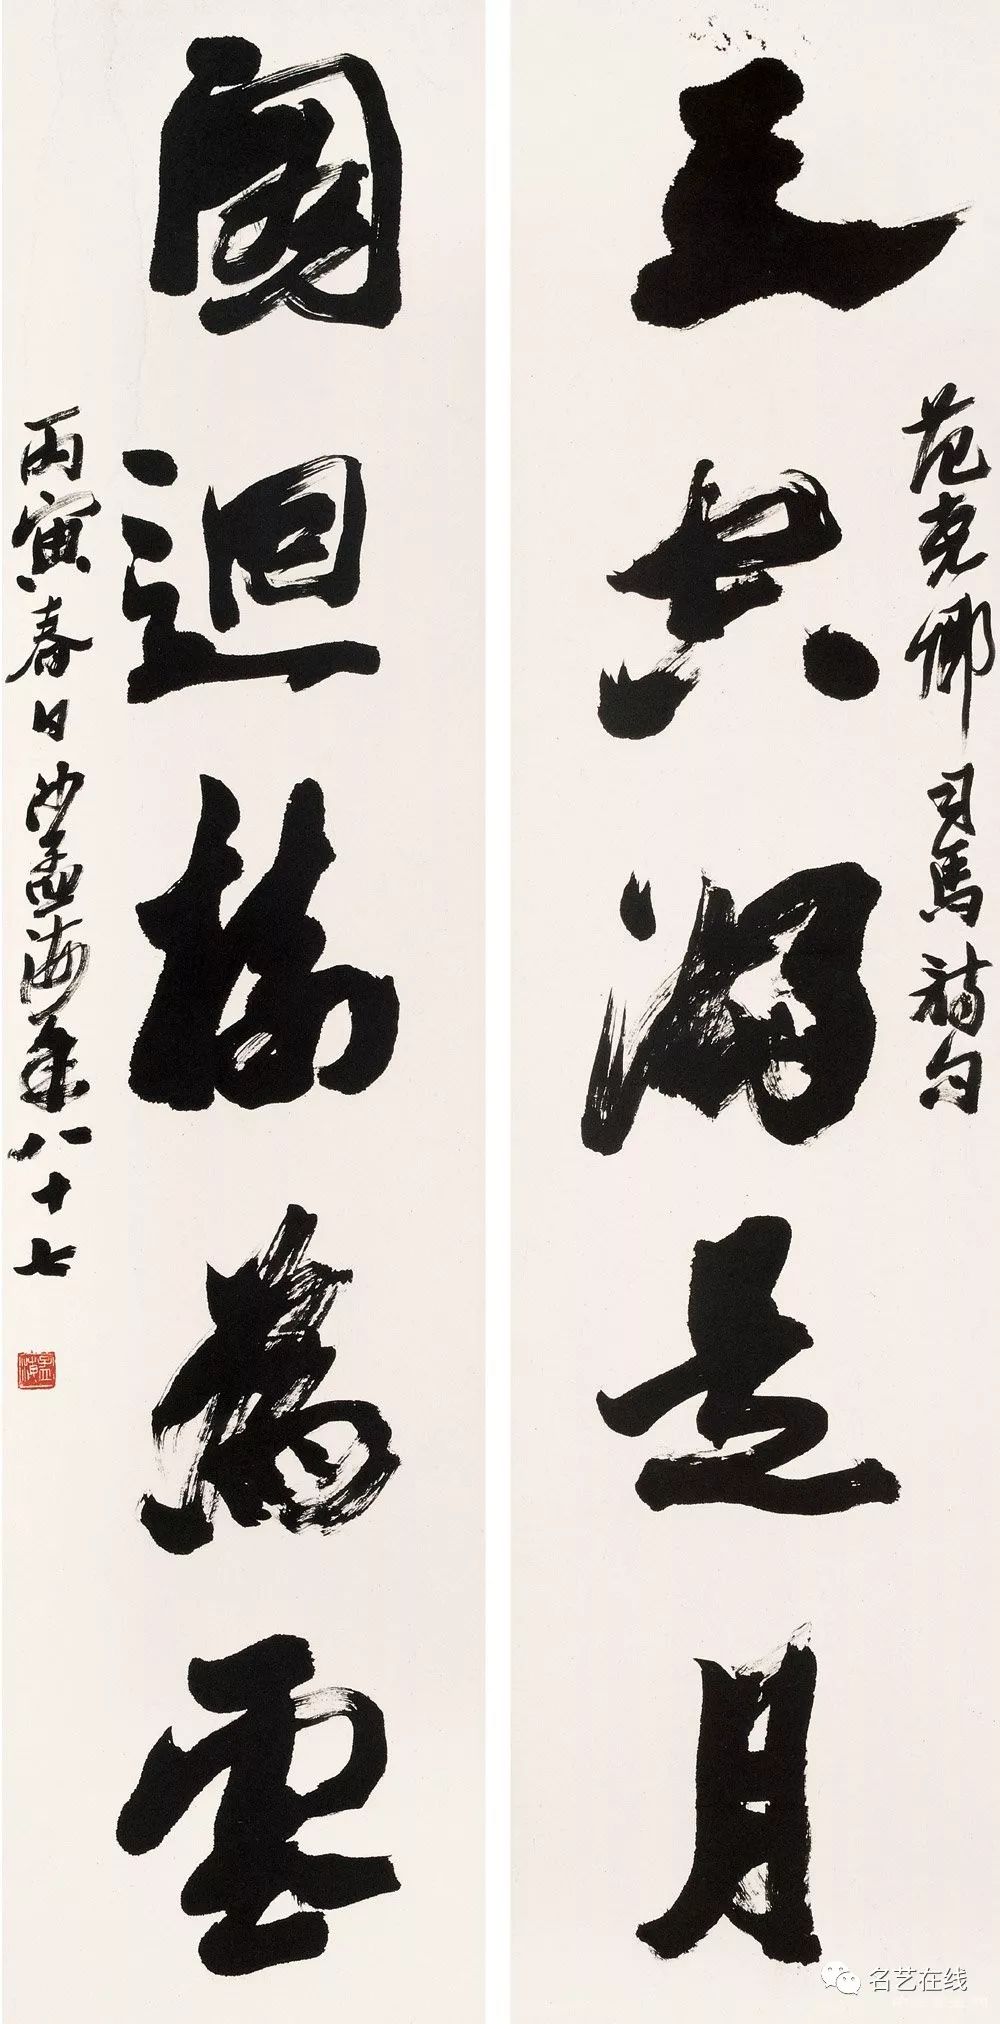 湖是月
范克卿司馬詩句
迴樹為雲
丙寅春日沙孟海年八十七
孟海
名艺在线